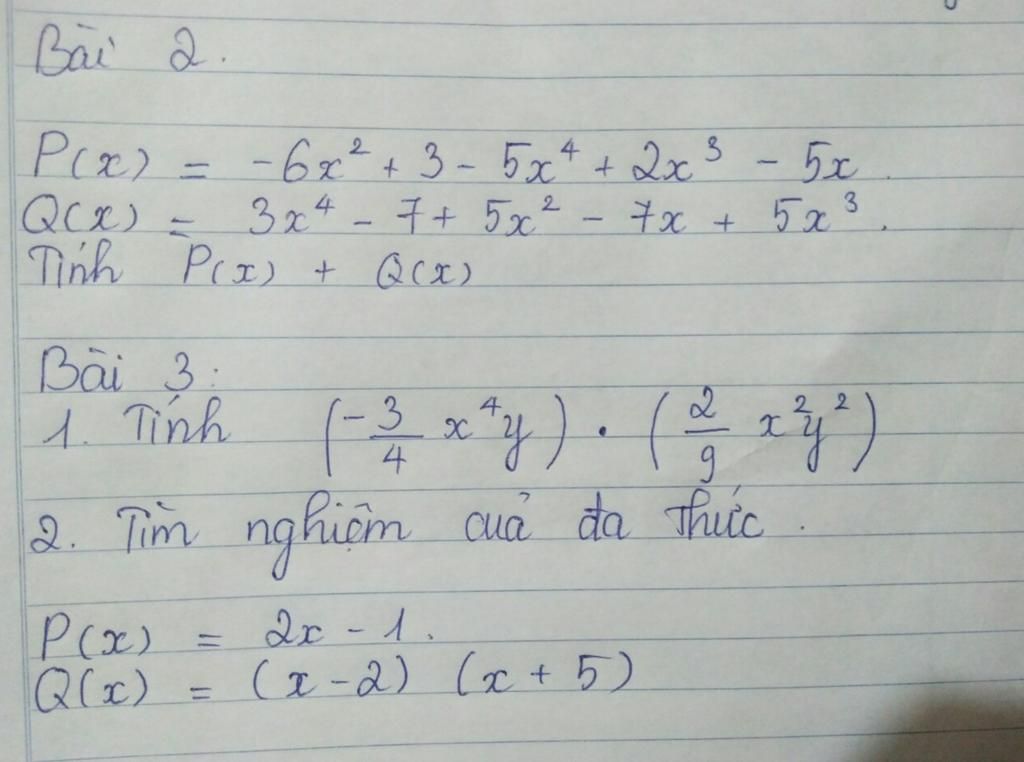 Bài 2.
P(x) = -6x² + 3 - 5x⁴ + 2x³ - 5x.
Q(x) = 3x⁴ - 7 + 5x² - 7x + 5x³.
Tính P(x) + Q(x)
Bài 3:
1. Tính (-3/4 x⁴y) · (2/9 x²y²)
2. Tìm nghiệm cuả đa thức.
P(x) = 2x - 1.
Q(x) = (x - 2) (x + 5)